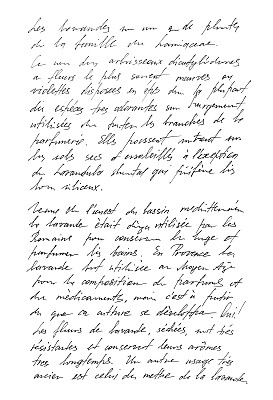 Les lavandes un genre de plantes
de la famille des lamiaceae.
Ce sont des arbrisseaux dicotylédones
à fleurs le plus souvent mauves ou
violettes disposées en épis dont la plupart
des espèces, très odorantes sont largement
utilisées dans toutes les branches de la
parfumerie. Elles poussent surtout sur
les sols secs et ensoleillés à l'exception
de Lavandula que préfère les
sols siliceux.
Venue de l'ouest du bassin méditerranéen
la lavande était déjà utilisée par les
Romains pour conserver le linge et
parfumer les bains. En Provence la
lavande fut utilisée au Moyen Age
pour la composition de parfums et
de médicaments, mais c'est à partir
du que sa culture se développa.
Les fleurs de lavande, séchées, sont très
résistantes et conservent leurs arômes
très longtemps. Un autre usage très
ancien est celui de mettre de la lavande